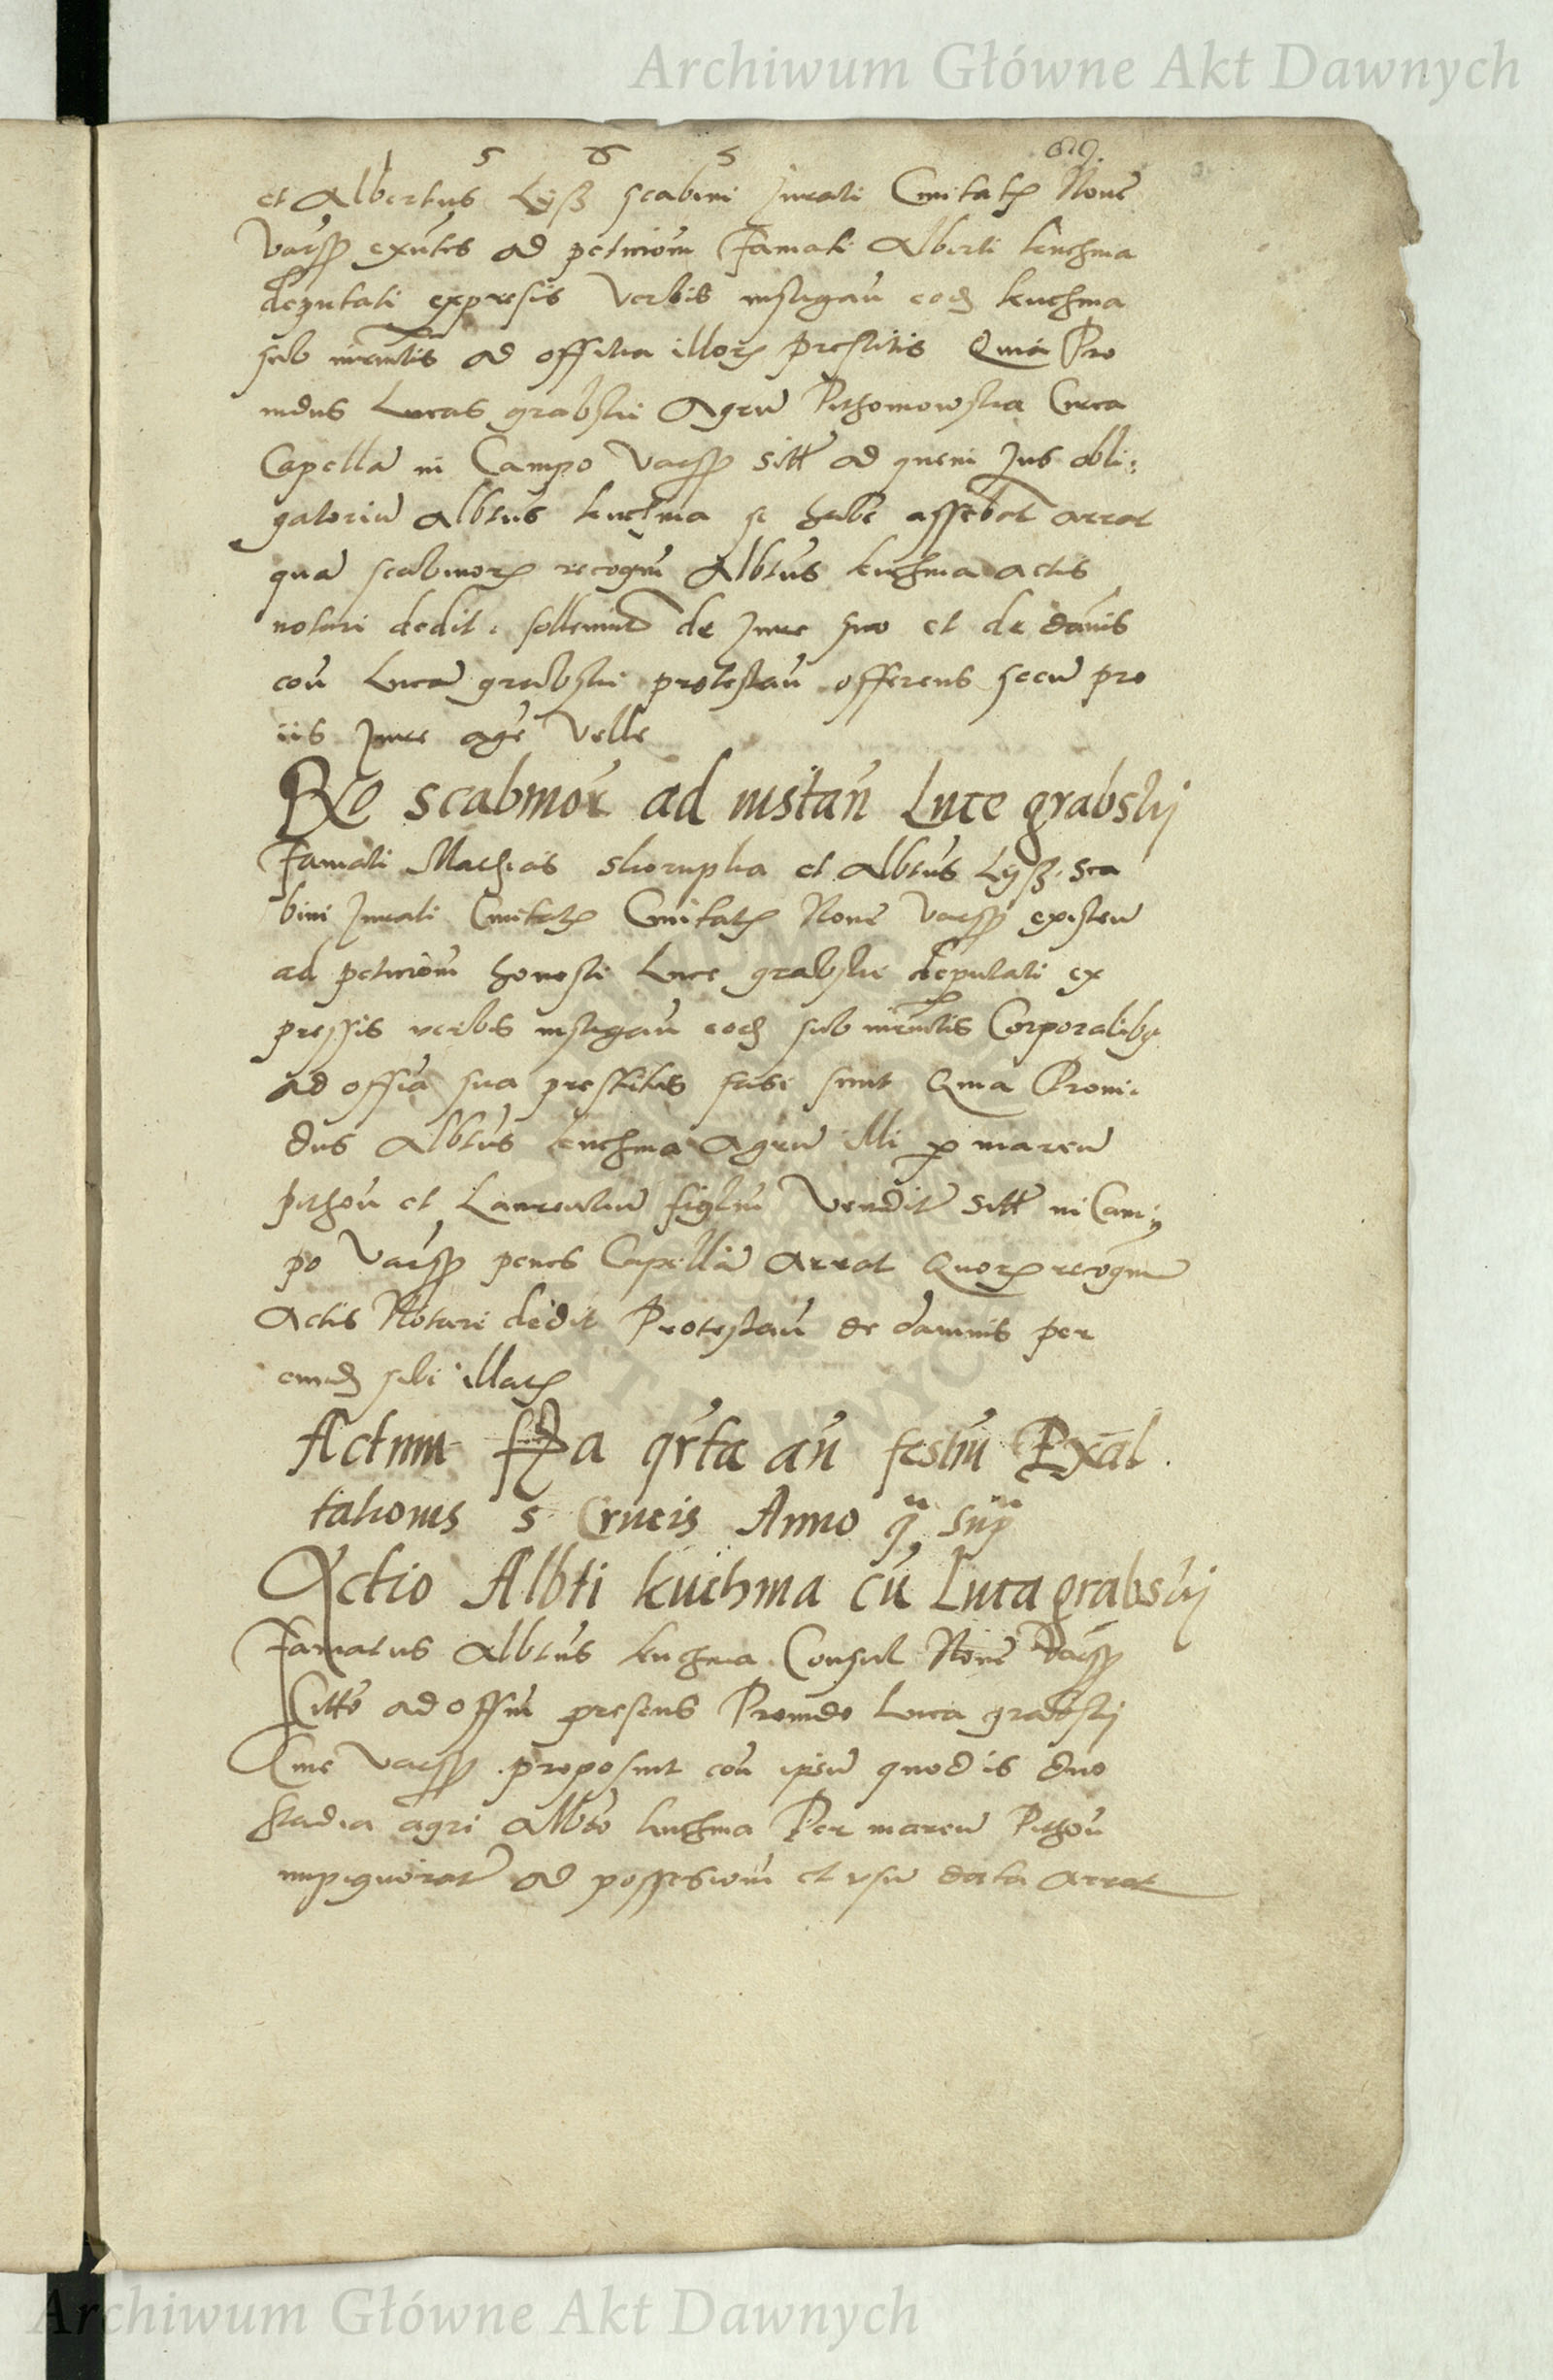 Archiwum Główne Akt Dawnych
1 5 6 5 619.
et Albertus Lyß scabini Jurati Civitatis Nove
Varss exntes ad peticiom Famati Alberti kuchma
deputati expresis verbis instigan eod kuchma
sub iuramtis ad officia illor prestitis Quia Pro
vidus Lucas grabskii Agrum Pithomowska Circa
Capella in Campo Varss sitt ad quem Jus obli:
gatoriu Albtus kuchma se habe assebat arrat
qua scabinor recogni Albtus kuchma actis
notari dedit. sollemnit de Jure suo et de damnis
con Luca grabskii protestan offerens secu pro
iis Jure age velle
Reo scabinor ad instan Luce grabskij
Famati Mathias skorupka et Albtus Lyß. sca
bini Jurati Civitatis Civitatis Nove Varss existen
ad peticiom honesti Luce grabskii deputati ex
pressis verbis instigan eod sub iuramtis Corporalibq
ad offia sua prestitis fassi sunt Quia Provi:
dus Albtus kuchma Agru illi p marcu
pithon et Laurentiu figlu vendit sitt in Cam
po Varss penes Capella Arrat Quor recogni
Actis Notari dedit Protestan de damnis per
eund sibi illatis
Actum fria qrta an festu Exal
tationis S Crucis Anno q sup
Actio Albti kuchma cu Luca grabskij
Famatus Albtus kuchma Consul Nove Varss
Citte ad offiu presens Provido Luca grabskij
Cive Varss proposuit con ipsu quod is duo
stadia agri Albto kuchma Per marcu Pithon
impignorat ad possessiom et usu data Arrat
Archiwum Główne Akt Dawnych